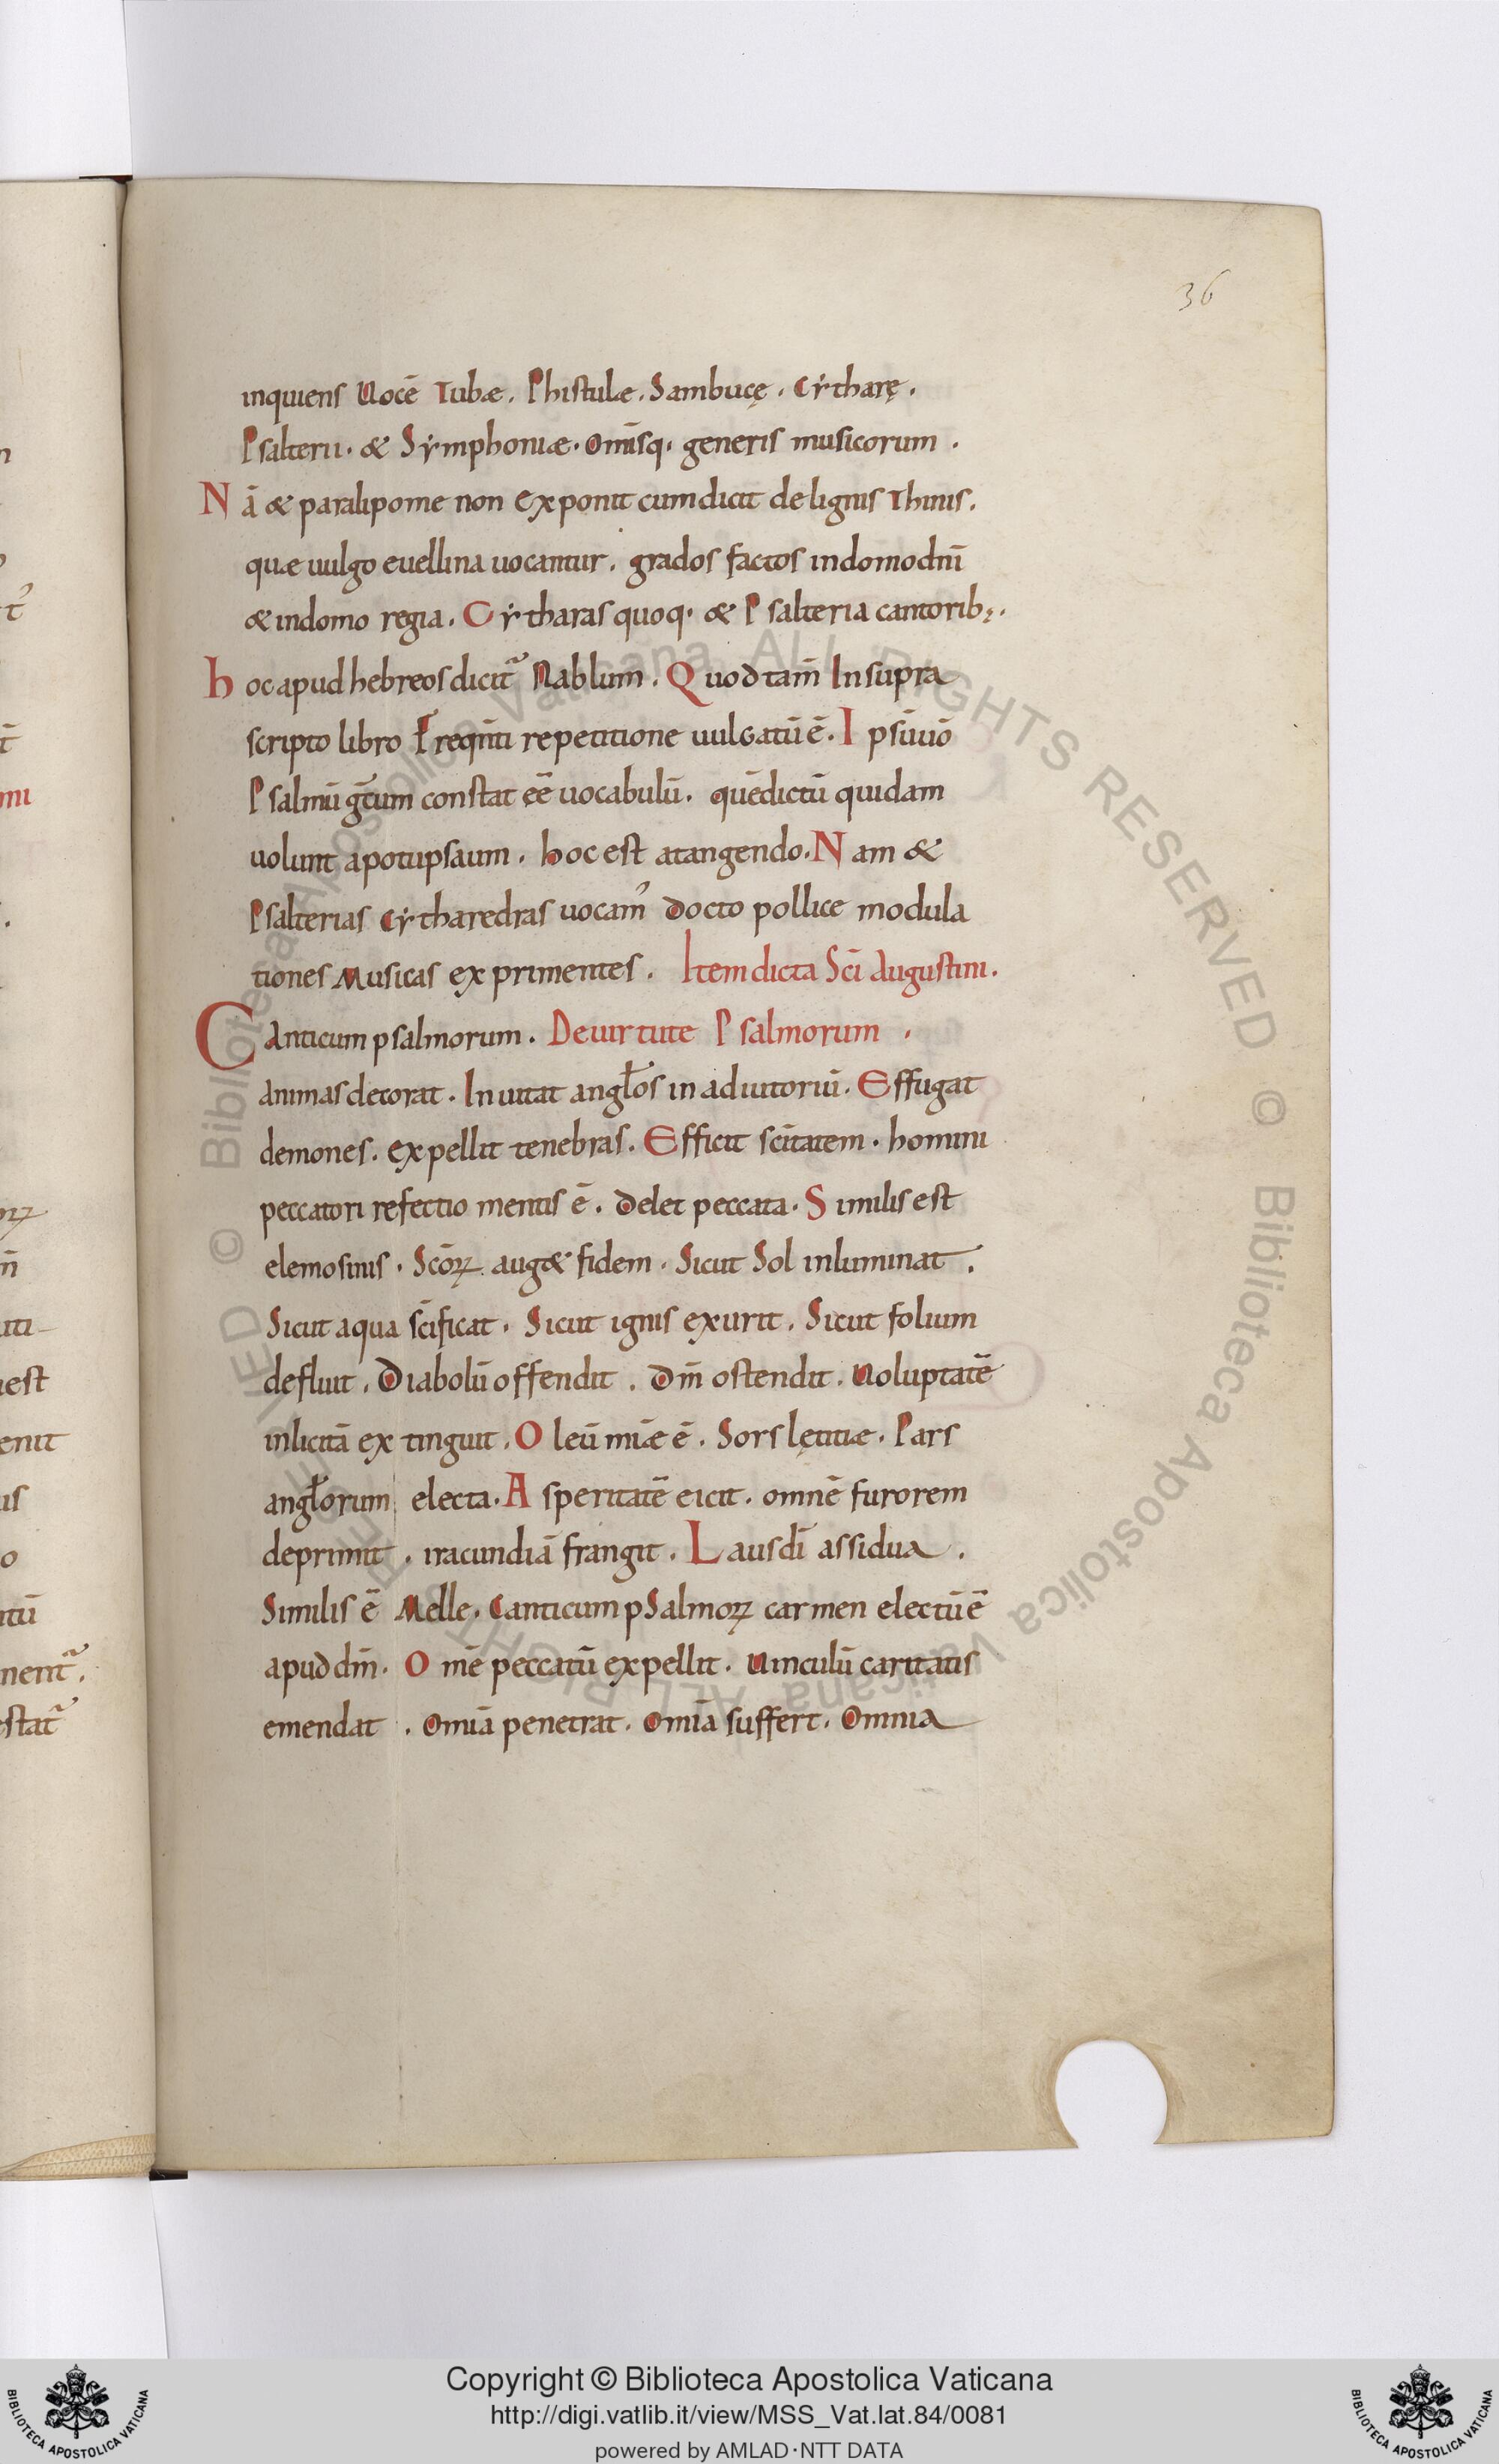 36
inquiens Uocē Tubæ. Phistulæ. Sambucę. Cẏtharę.
Psalterii. & Sẏmphoniæ. Omīsq. generis musicorum.
Nā & paralipome non exponit cumdicit delignis Thinis.
quæ uulgo euellina uocantur. grados factos indomodnī
& indomo regia. Cẏtharas quoq. & Psalteria cantorib;.
hoc apud hebreos dicit᷑ Nablum. Quod tam̄ Insupra
scripto libro Freqn̄ti repetitione uulgatū ē. Ipsū uō
Psalmū gc̄um constat ęē uocabulū. quē dictū quidam
uolunt apotupsaum. hoc est atangendo. Nam &
Psalterias Cẏtharedras uocam᾿ docto pollice modula
tiones Musicas exprimentes. Item dicta Sc̄i Augustini.
Canticum psalmorum. De uirtute Psalmorum.
Animas decorat. Inuitat angłos in adiutoriū. Effugat
demones. expellit tenebras. Efficit sc̄itatem. homini
peccatori refectio mentis ē. delet peccata. Similis est
elemosinis. Scōꝝ aug& fidem. Sicut Sol inluminat.
Sicut aqua sc̄ificat. Sicut ignis exurit. Sicut folium
defluit. Diabolū offendit. Dm̄ ostendit. Uoluptatē
inlicitā extinguit. Oleū miǣ ē. Sors lętitiæ. Pars
angłorum electa. Asperitatē eicit. omnē furorem
deprimit. iracundiā frangit. Laus dī assidua.
Similis ē Melle. Canticum pSalmoꝝ carmen electū ē
apud dm̄. Omē peccatū expellit. Uinculū caritatis
emendat. Omiā penetrat. Omiā suffert. Omnia
Copyright © Biblioteca Apostolica Vaticana
http://digi.vatlib.it/view/MSS_Vat.lat.84/0081
powered by AMLAD·NTT DATA